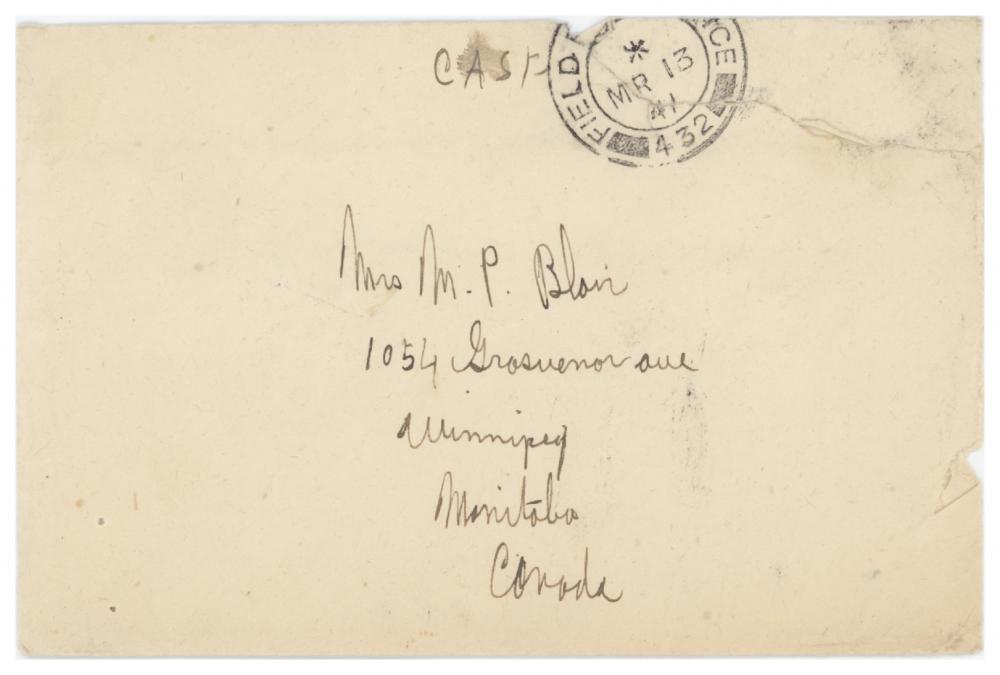 CASF
FIELD POST OFFICE
*
MR 13
41
432
Mrs M. P. Blair
1054 Grosvenor ave
Winnipeg
Manitoba
Canada